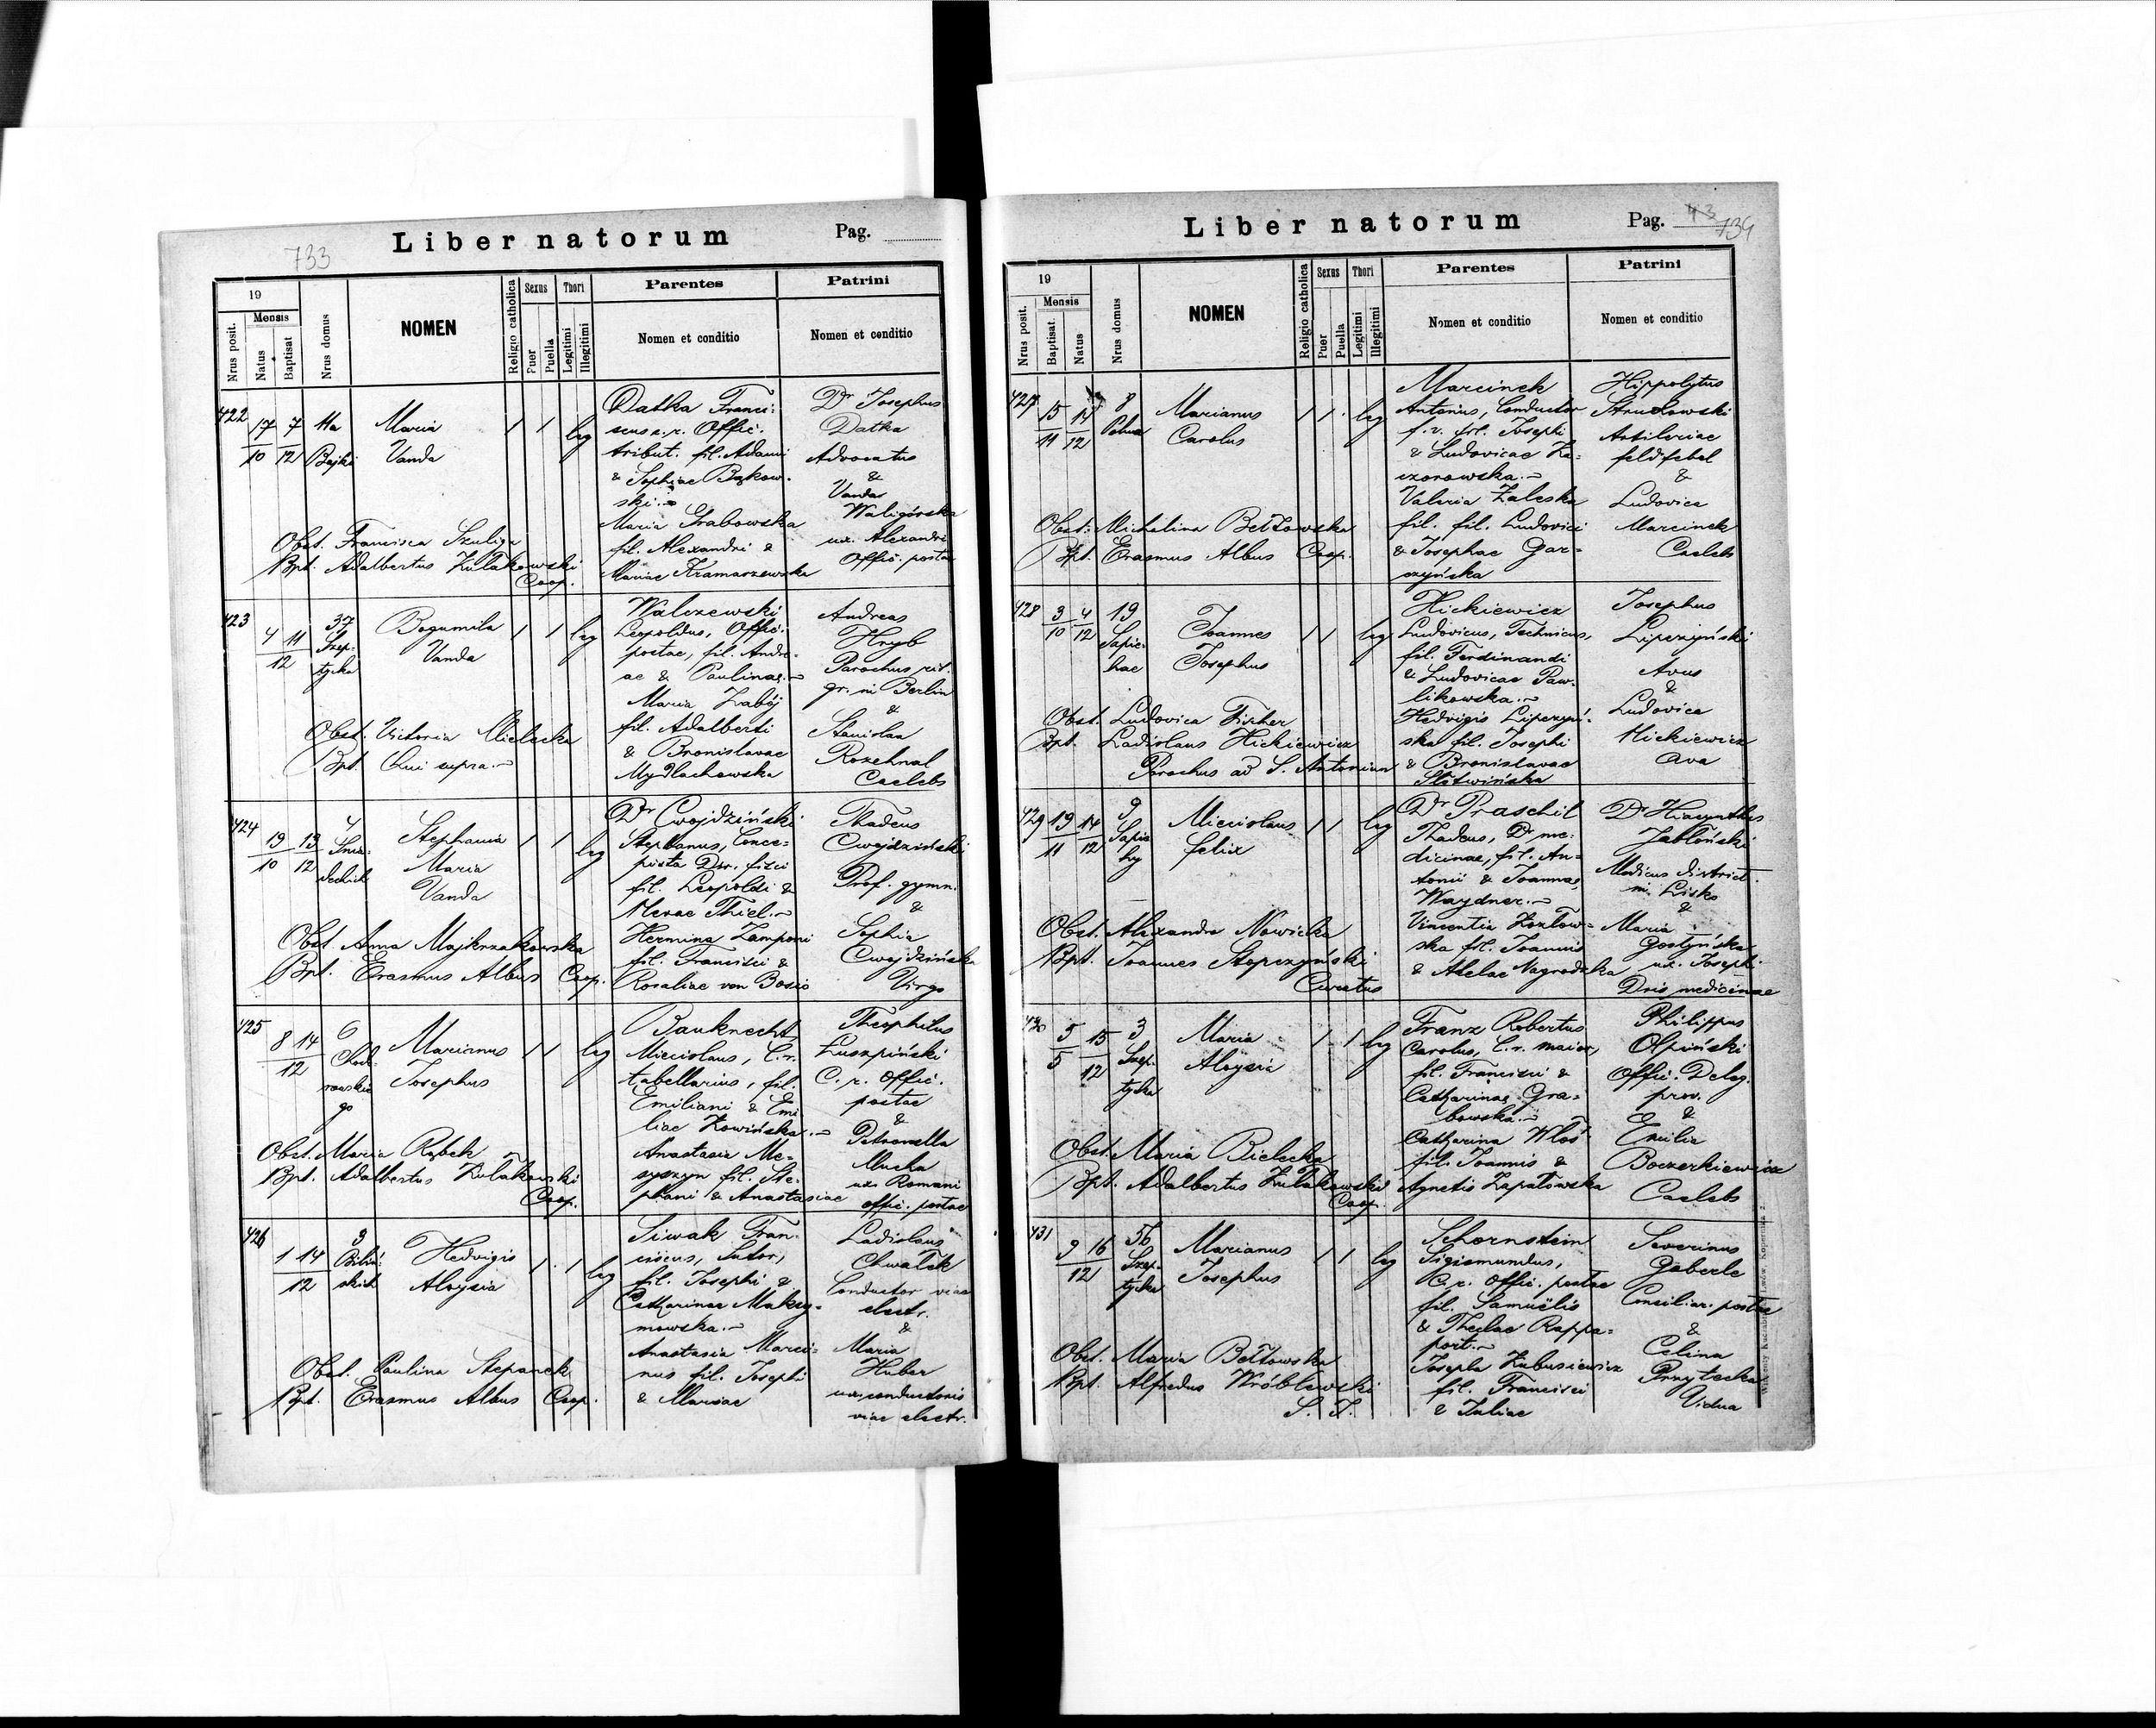 733
Liber natorum
Pag.
19
Mensis
Nrus posit.
Natus
Baptisat
Nrus domus
NOMEN
Religio catholica
Sexus
Puer
Puella
Thori
Legitimi
Illegitimi
Parentes
Nomen et conditio
Patrini
Nomen et conditio
422
17 7
10 12
11a
Bajki
Maria
Vanda
1 1 leg
Datka Franci-
scus c. r. Offic.
tribut. fil. Adami
& Sophiae Bąkow-
ski.
Maria Grabowska
fil. Alexandri &
Mariae Kramarzewska
Dr Josephus
Datka
Advocatus
&
Vanda
Waligórska
ux. Alexandri
Offic. postae
Obst. Francisca Szuliga
Bpt. Adalbertus Żułakowski
Coop.
423
4 11
12
37
Szep-
tycka
Bogumila
Vanda
1 1 leg
Walczewski
Leopoldus, Offic.
postae, fil. Andre-
ae & Paulinae.
Maria Zabój
fil. Adalberti
& Bronislavae
Mydlachowska
Andreas
Hryb
Parochus rit.
gr. in Berlin
&
Stanislaa
Rozehnal
Caelebs
Obst. Victoria Mielecka
Bpt. Qui supra.
424
19 13
10 12
4
Śnia-
deckich
Stephania
Maria
Vanda
1 1 leg
Dr Cwojdziński
Stephanus, Conce-
pista Dir. fisci
fil. Leopoldi &
Merae Thiel.
Hermina Zamponi
fil. Francisci &
Rosaliae von Bosio
Thadeus
Cwojdziński
Prof. gymn.
&
Sophia
Cwojdzińska
Virgo
Obst. Anna Majchrzakowska
Bpt. Erasmus Albus Coop.
425
8 14
12
6
Sad-
rowskie
go
Marianus
Josephus
1 1 leg
Bauknecht
Miecislaus, C. r.
tabellarius, fil.
Emiliani & Emi
liae Kowińska.
Anastasia Me-
syszyn fil. Ste-
phani & Anastasiae
Theophilus
Łuszpiński
C. r. Offic.
postae
&
Petronella
Mucha
ux. Romani
offic. postae
Obst. Maria Rąbek
Bpt. Adalbertus Żułakowski
Coop.
426
1 14
12
3
Biliń-
skich
Hedvigis
Aloysia
1 1 leg
Siwak Fran-
ciscus, Sutor,
fil. Josephi &
Catharinae Maksy-
mowska.
Anastasia Marci-
nus fil. Josephi
& Mariae
Ladislaus
Chwałek
Conductor viae
electr.
&
Maria
Huber
ux. conductoris
viae electr.
Obst. Paulina Stepanek
Bpt. Erasmus Albus Coop.
Liber natorum
Pag. 43 734
19
Mensis
Nrus posit.
Baptisat.
Natus
Nrus domus
NOMEN
Religio catholica
Sexus
Puer
Puella
Thori
Legitimi
Illegitimi
Parentes
Nomen et conditio
Patrini
Nomen et conditio
427
15 14
11 12
8
Polna
Marianus
Carolus
1 1 leg
Marcinek
Antonius, Conductor
f. v. fil. Josephi
& Ludovicae Ka-
czorowska.
Valeria Zaleska
fil. fil. Ludovici
& Josephae Gar-
czyńska
Hippolytus
Strudowski
Artileriae
feldfebel
&
Ludovica
Marcinek
Caelebs
Obst. Michalina Bełzowska
Bpt. Erasmus Albus Coop.
428
3 4
10 12
19
Sapie-
hae
Joannes
Josephus
1 1 leg
Hickiewicz
Ludovicus, Technicus,
fil. Ferdinandi
& Ludovicae Paw-
likowska.
Hedvigis Lipczyń-
ska fil. Josephi
& Bronislavae
Slitwińska
Josephus
Lipczyński
Avus
&
Ludovica
Hickiewicz
Ava
Obst. Ludovica Fischer
Bpt. Ladislaus Hickiewicz
Parochus ad S. Antonium
429
19 14
11 12
9
Sapie
hy
Miecislaus
Felix
1 1 leg
Dr Praschil
Thadeus, Dr me-
dicinae, fil. An-
tonii & Joannae
Waydner.
Vincentia Kozłow-
ska fil. Joannis
& Adelae Nagrodzka
Dr Hiacynthus
Jabłoński
Medicus district.
in Lisko
&
Maria
Gostyńska
ux. Joseph
Dris medicinae
Obst. Alexandra Nowicka
Bpt. Joannes Stopczyński
Curatus
430
5 15
5 12
3
Szep-
tycka
Maria
Aloysia
1 1 leg
Franz Robertus
Carolus, C. r. maior,
fil. Francisci &
Catharinae Gra-
bowska.
Catharina Włoś
fil. Joannis &
Agnetis Łapatowska
Philippus
Olpiński
Offic. Deleg.
prov.
&
Emilia
Boczerkiewicz
Caelebs
Obst. Maria Bielecka
Bpt. Adalbertus Żułakowski
Coop.
431
9 16
12
56
Szep-
tycka
Marianus
Josephus
1 1 leg
Schornstein
Sigismundus,
C. r. Offic. postae
fil. Samuëlis
& Theclae Rappa-
port.
Josepha Kubusiewicz
fil. Francisci
& Juliae
Severinus
Gaberle
Consiliar. postae
&
Celina
Przytecka
Vidua
Obst. Maria Bełtowska
Bpt. Alfredus Wróblewski
S. J.